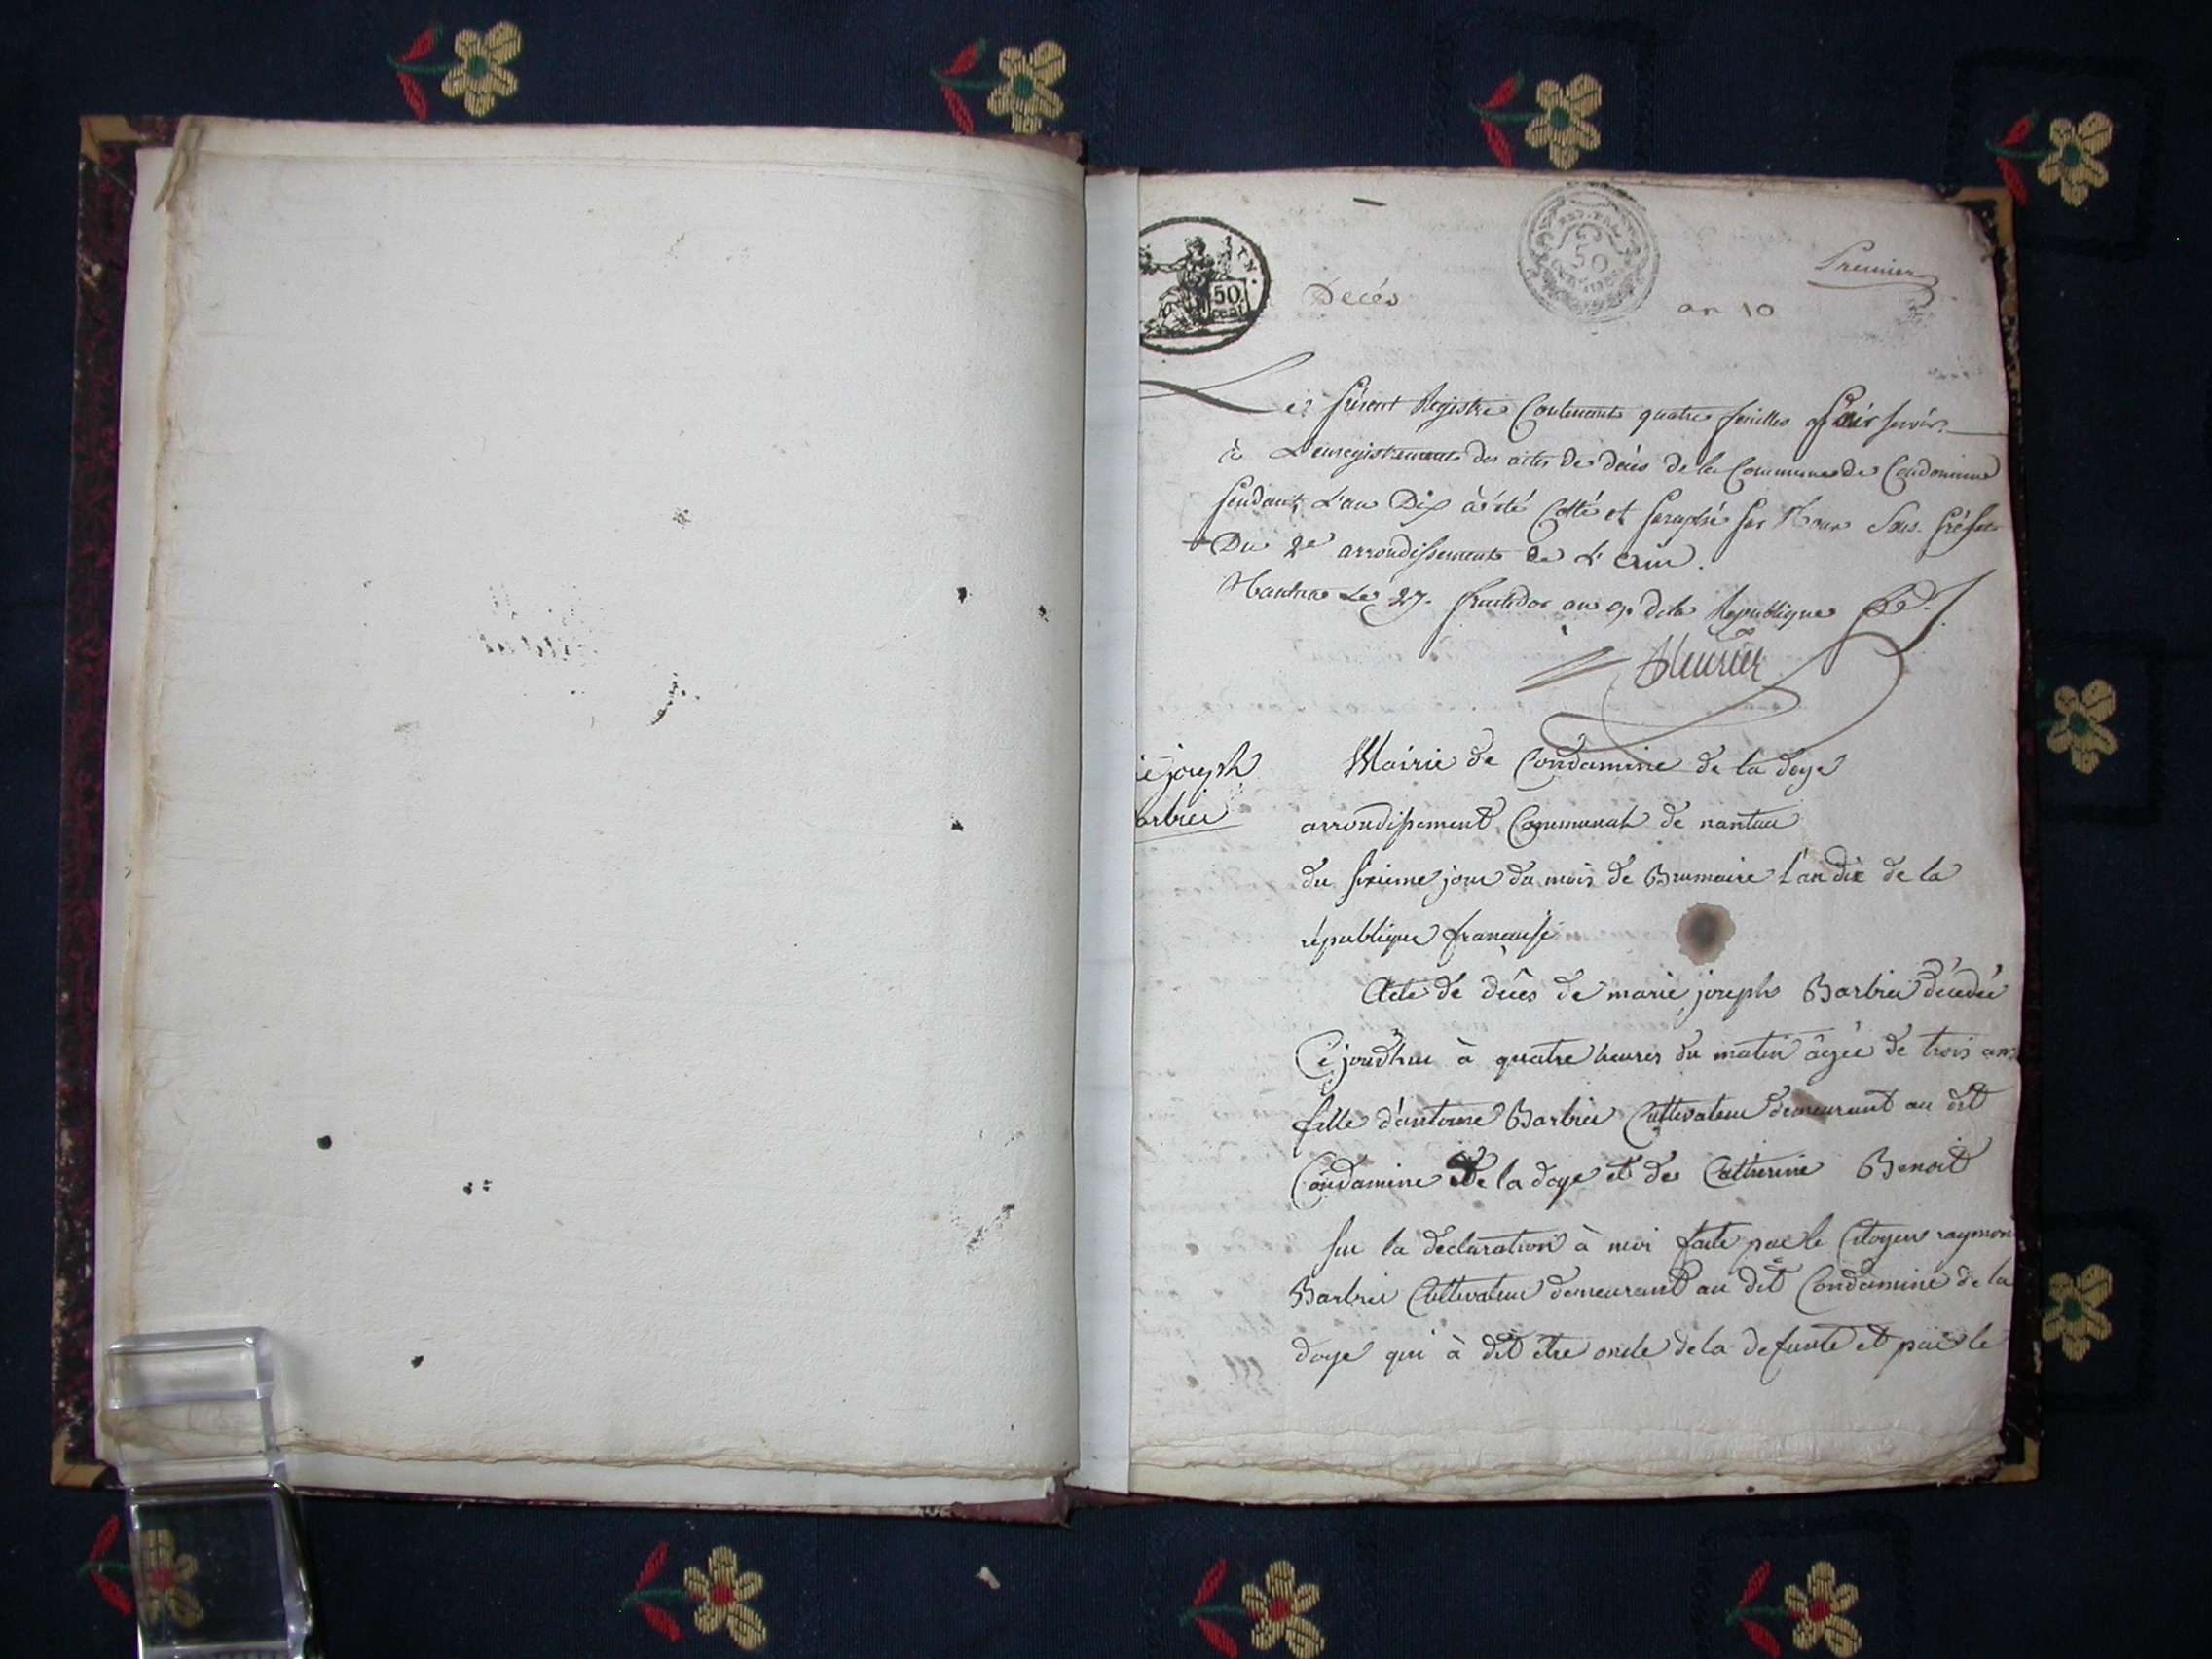 Premier
50
50
cent
Decés
an 10
Le présent Registre Contenant quatre feuilles pour servir
à L'enregistrement des actes de décès de la Commune de Condamine
pendant L'an Dix à été Cotté et paraphé par Nous Sous-préfet
Du 2e arrondissement de L'Ain.
Nantua Le 27. fructidor an 9. de la Republique
ie joseph
arbier
Mairie de Condamine de la doye
arrondissement Communal de nantua
du sixieme jour du mois de Brumaire l'an dix de la
république francaise
Acte de décès de marie joseph Barbier décedée
Cejourdhui à quatre heures du matin âgée de trois ans
fille d'antoine Barbier Cultivateur demeurant au dit
Condamine de la doye et de Catherine Benoit
sur la declaration à moi faite par le Citoyen raymon
Barbier Cultivateur demeurant au dit Condamine de la
doye qui à dit etre oncle de la defunte et par le